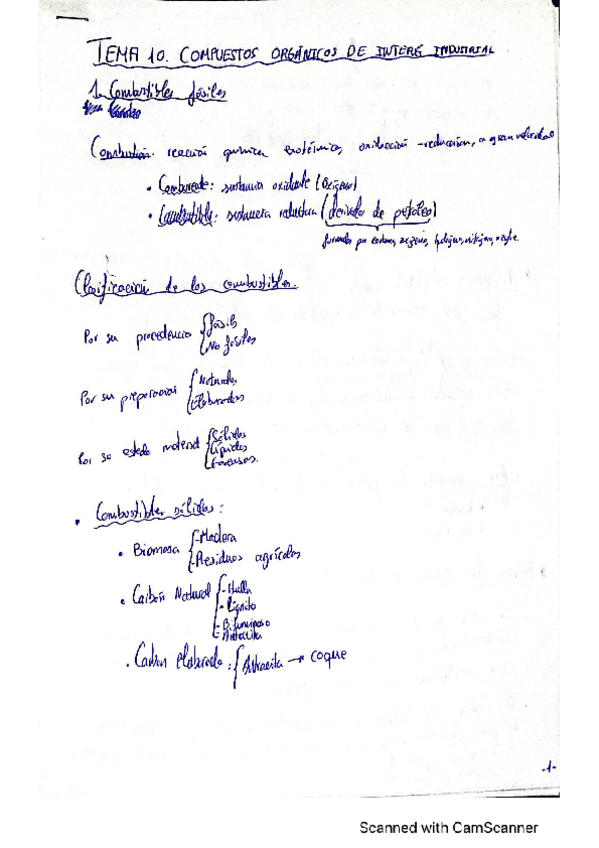 TEMA 10. COMPUESTOS ORGÁNICOS DE INTERÉ INDUSTRIAL
1. Combustibles fósiles
Combustión: reacción química exotérmica, oxidación-reducción, a gran velocidad
• Comburente: sustancia oxidante (oxígeno)
• Combustible: sustancia reductora (derivado de petróleo)
formados por carbono, oxígeno, hidrógeno, nitrógeno, azufre.
Clasificación de los combustibles.
Por su procedencia { fósiles
No fósiles
Por su preparación { Naturales
Elaborados
Por su estado material { Sólidos
Líquidos
Gaseosos.
• Combustibles sólidos:
• Biomasa { - Madera
- Residuos agrícolas
• Carbón Natural { - Hulla
- Lignito
- Bituminoso
- Antracita
• Carbón elaborado: { Antracita → coque
-1-
Scanned with CamScanner